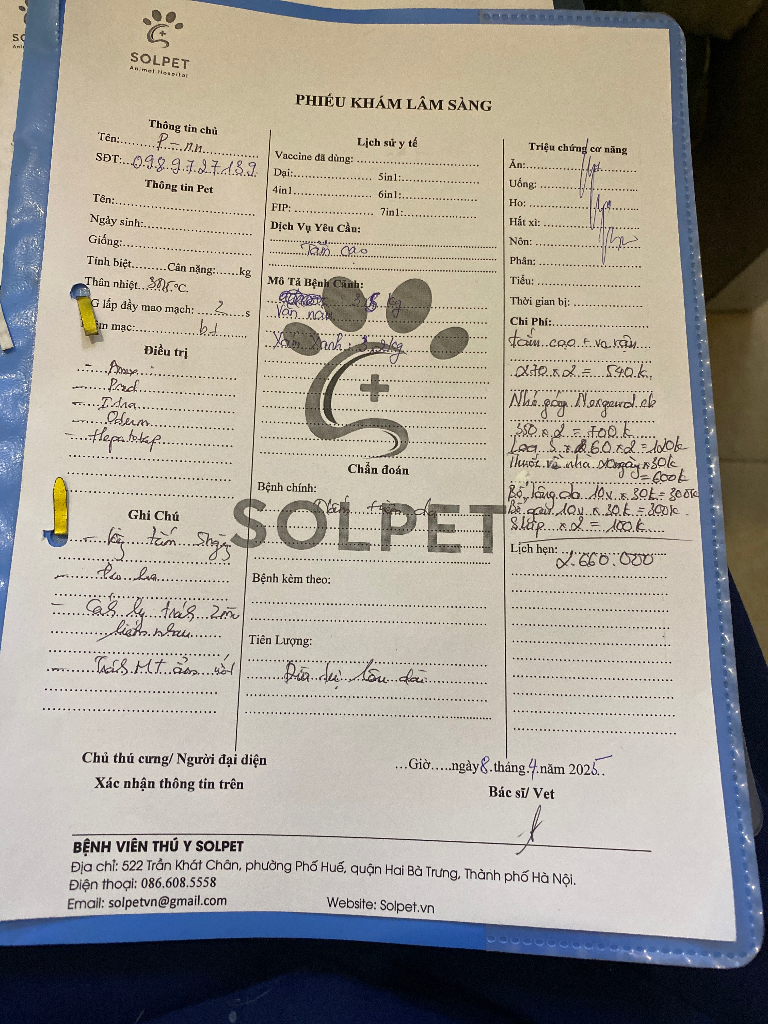 SOLPET
Animal Hospital
PHIẾU KHÁM LÂM SÀNG
Thông tin chủ
Tên:
SĐT: 0989727139
Thông tin Pet
Tên:
Ngày sinh:
Giống:
Tính biệt Cân nặng: kg
Thân nhiệt °C.
G lấp đầy mao mạch: 2 s
m mạc: bt
Điều trị
- Pred
- Itra
- Oderm
- Hepatotap
Ghi Chú
- tắm 5 ngày
- Cách ly tránh
liếm nhau
- Tránh MT ẩm ướt
Lịch sử y tế
Vaccine đã dùng:
Dại: 5in1:
4in1 6in1:
FIP: 7in1:
Dịch Vụ Yêu Cầu:
Tắm cạo
Mô Tả Bệnh Cảnh:
Vằn nâu
Xám Xanh: kg
Chẩn đoán
Bệnh chính:
SOLPET
Bệnh kèm theo:
Tiên Lượng:
Điều trị lâu dài
Triệu chứng cơ năng
Ăn:
Uống:
Ho:
Hắt xì:
Nôn:
Phân:
Tiểu:
Thời gian bị:
Chi Phí:
tắm cạo + ve rận
270 x 2 = 540k
Nhỏ gáy Nexgard
350 x 2 = 700k
60 x 2 = 120k
Thuốc về nhà 20 ngày x 30k
= 600k
10v x 30k = 300k
10v x 30k = 300k
x 2 = 100k
Lịch hẹn:
2.660.000
Chủ thú cưng/ Người đại diện
Xác nhận thông tin trên
...Giờ.....ngày 8 tháng 4 năm 2025
Bác sĩ/ Vet
BỆNH VIỆN THÚ Y SOLPET
Địa chỉ: 522 Trần Khát Chân, phường Phố Huế, quận Hai Bà Trưng, Thành phố Hà Nội.
Điện thoại: 086.608.5558
Email: solpetvn@gmail.com Website: Solpet.vn